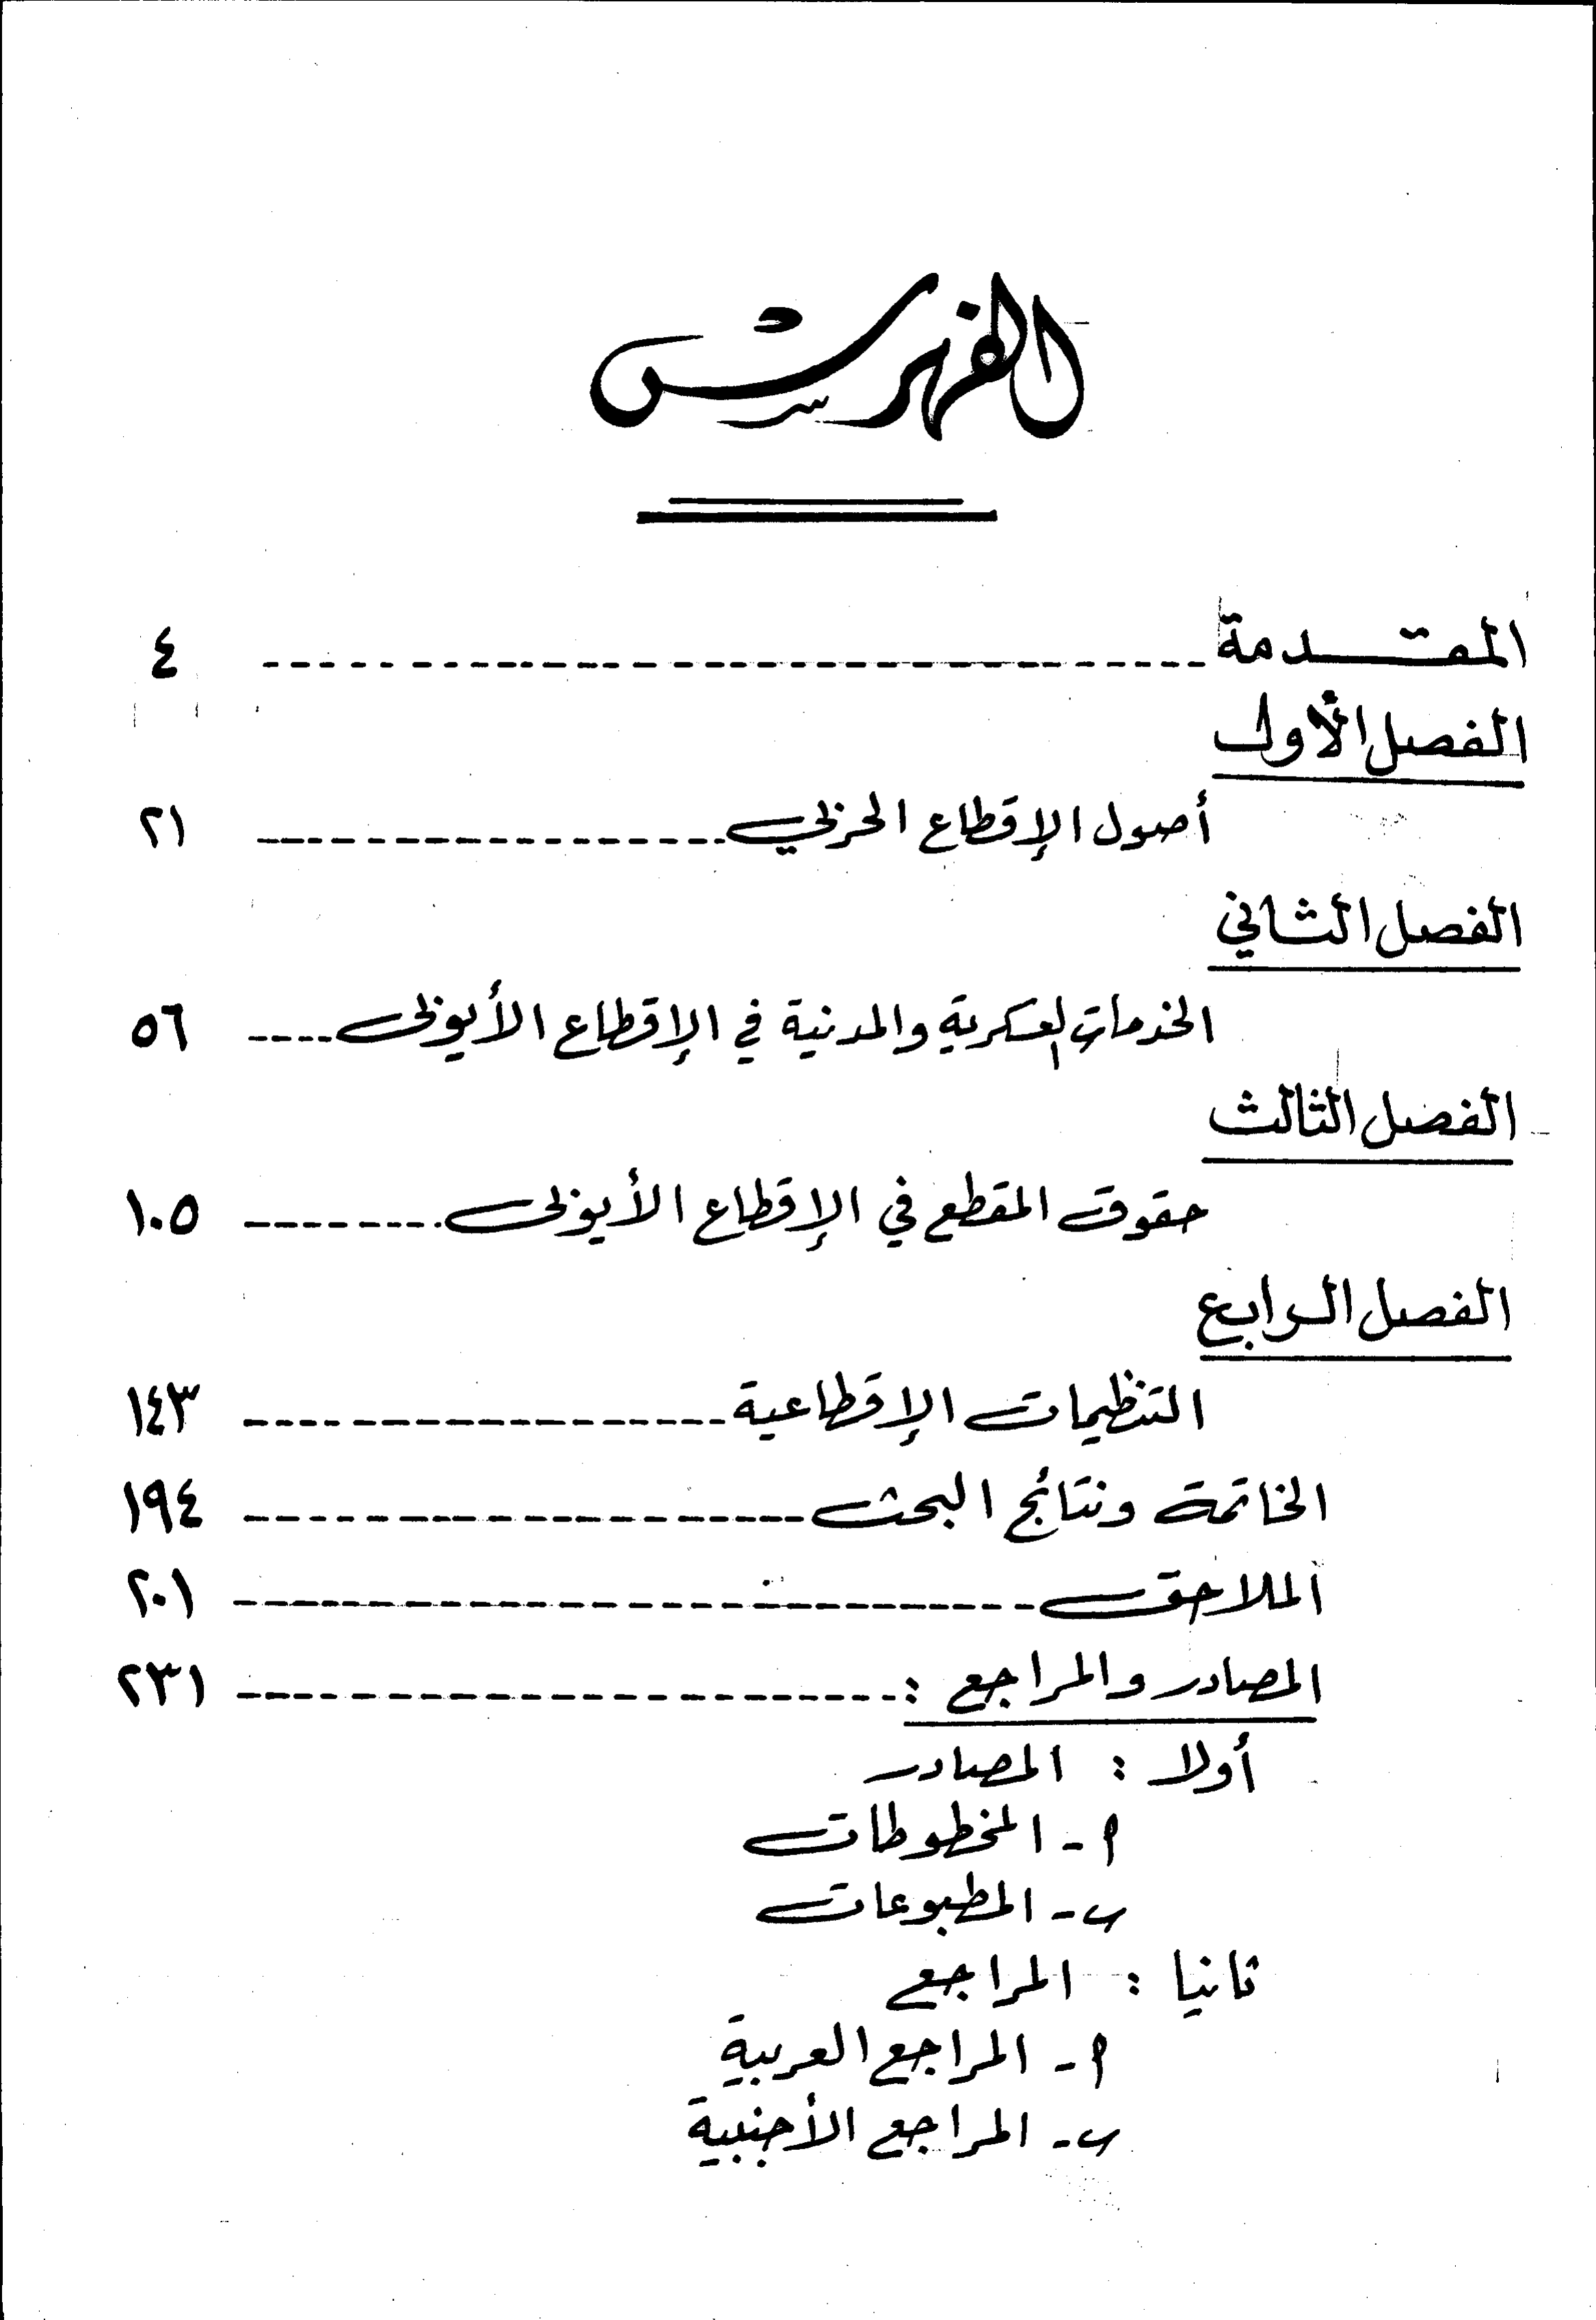 الفهرست
المقدمة ٤
الفصل الأول
أصول الإقطاع الحربي ٢١
الفصل الثاني
الخدمات العسكرية والمدنية في الإقطاع الأيوبى ٥٦
الفصل الثالث
حقوق المقطع في الإقطاع الأيوبى ١٠٥
الفصل الرابع
التنظيمات الإقطاعية ١٤٣
الخاتمة ونتائج البحث ١٩٤
الملاحق ٢٠١
المصادر والمراجع : ٢٣١
أولا : المصادر
أ - المخطوطات
ب - المطبوعات
ثانيا : المراجع
أ - المراجع العربية
ب - المراجع الأجنبية